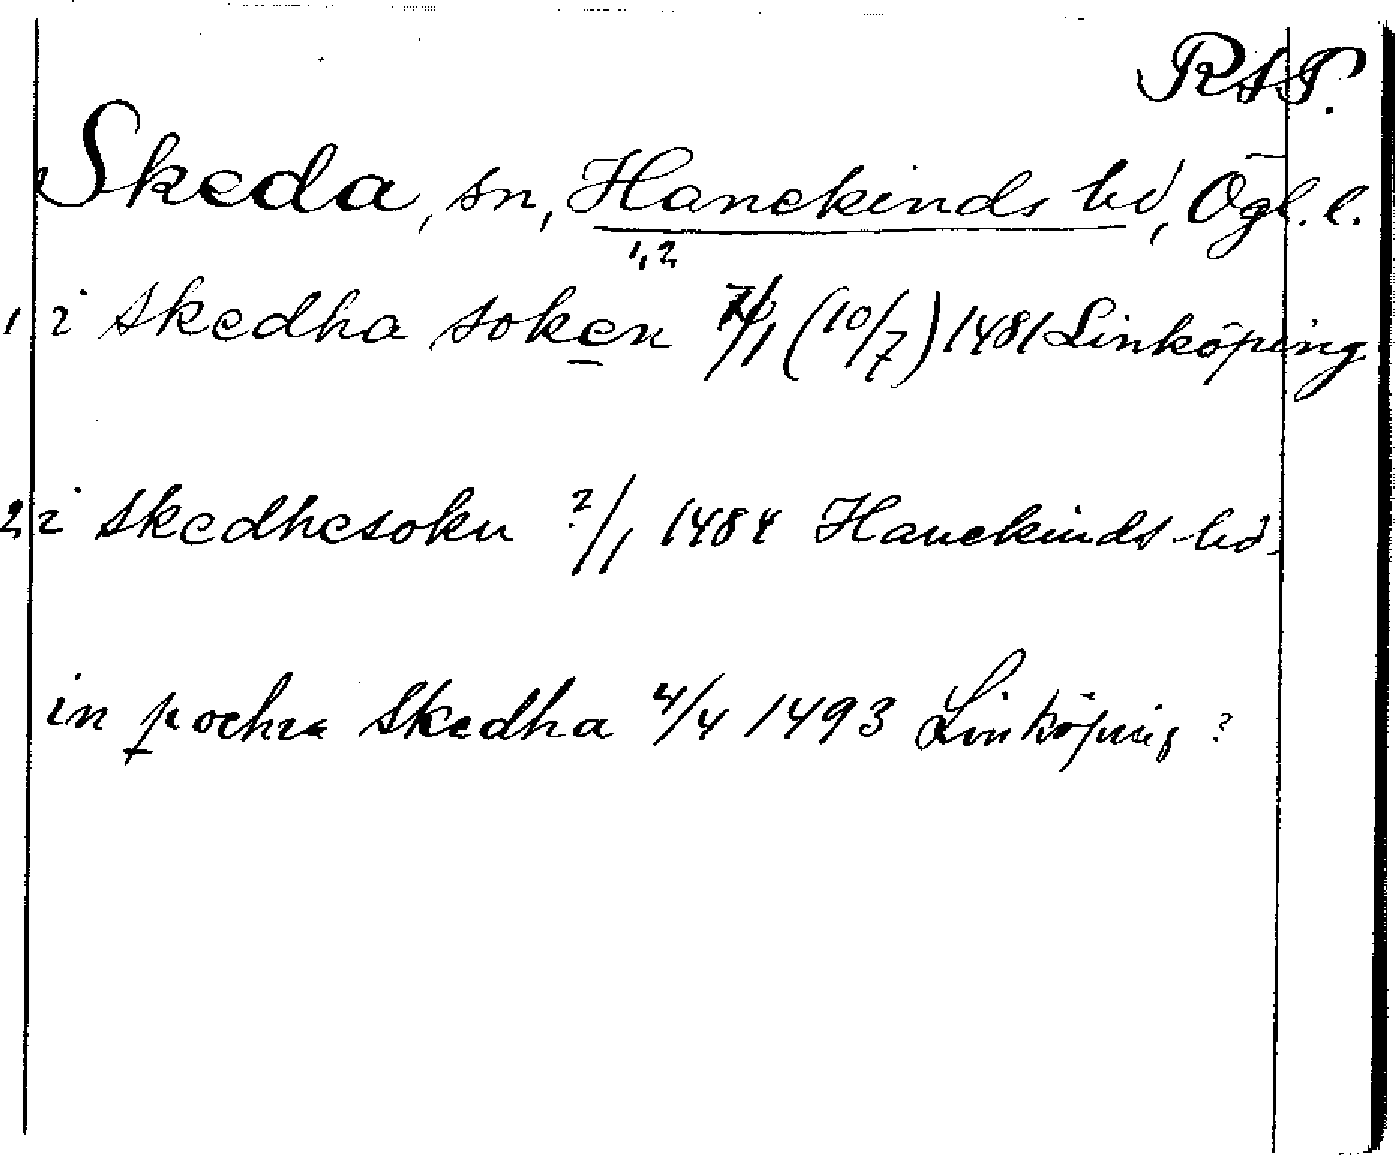 RAP.
Skeda, sn, Hanekinds hd, Ögl. l.
1,2
1, i skedha soken 7/1 (10/7) 1481 Linköping
2, i skedhesokn ?/1 1484 Hanekinds hd.
in pochia Skedha 4/4 1493 Linköping ?